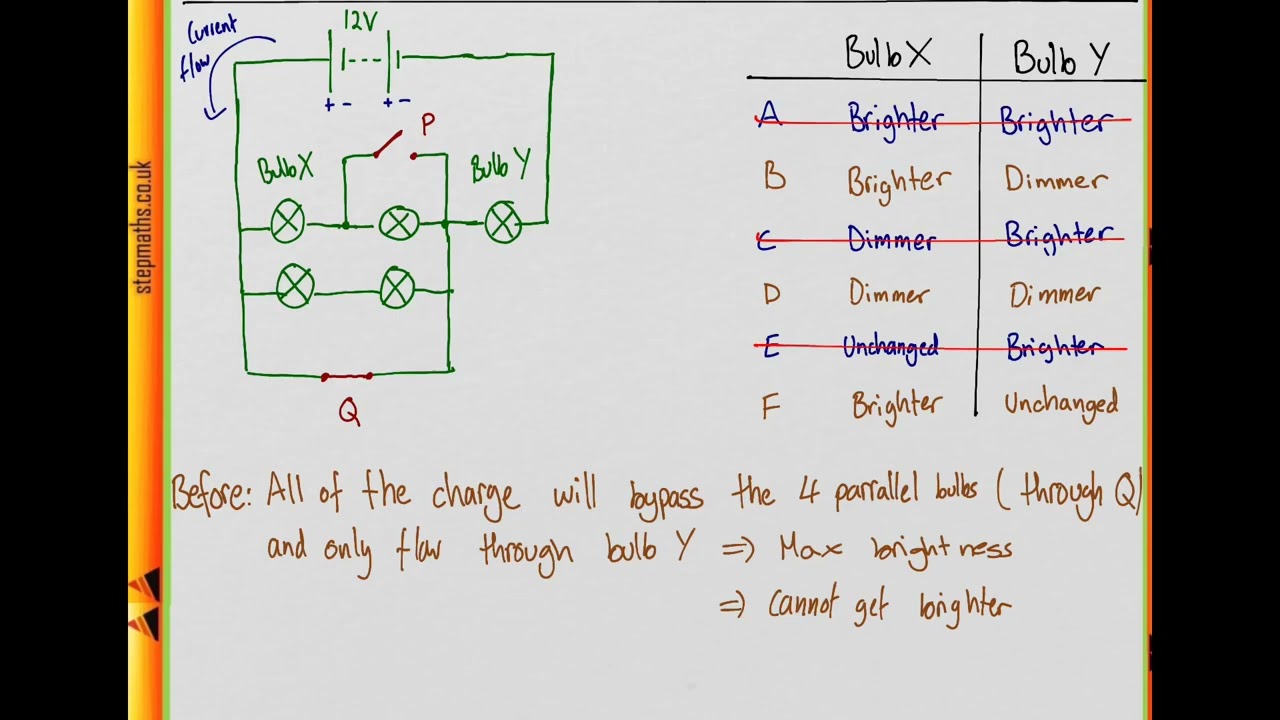 Current
flow
12V
+ - + -
P
Bulb X
Bulb Y
Q
Bulb X Bulb Y
A Brighter Brighter
B Brighter Dimmer
C Dimmer Brighter
D Dimmer Dimmer
E Unchanged Brighter
F Brighter Unchanged
Before: All of the charge will bypass the 4 parrallel bulbs (through Q)
and only flow through bulb Y ⇒ Max brightness
⇒ Cannot get brighter
stepmaths.co.uk